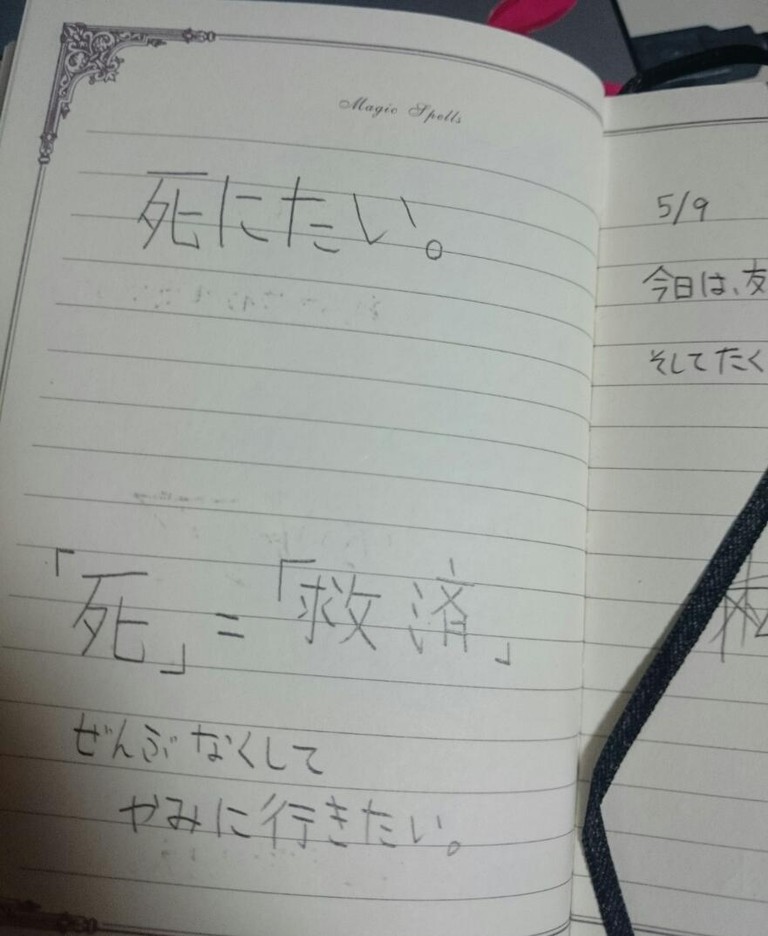 Magic Spells
死にたい。
「死」=「救済」
ぜんぶなくして
やみに行きたい。
5/9
今日は、友
そしてたく